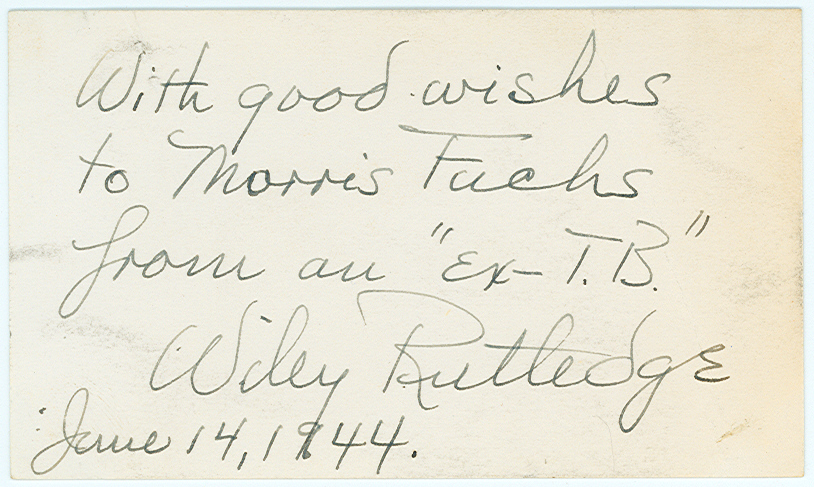 With good wishes
to Morris Fuchs
from an "ex-T.B."
Wiley Rutledge
June 14, 1944.